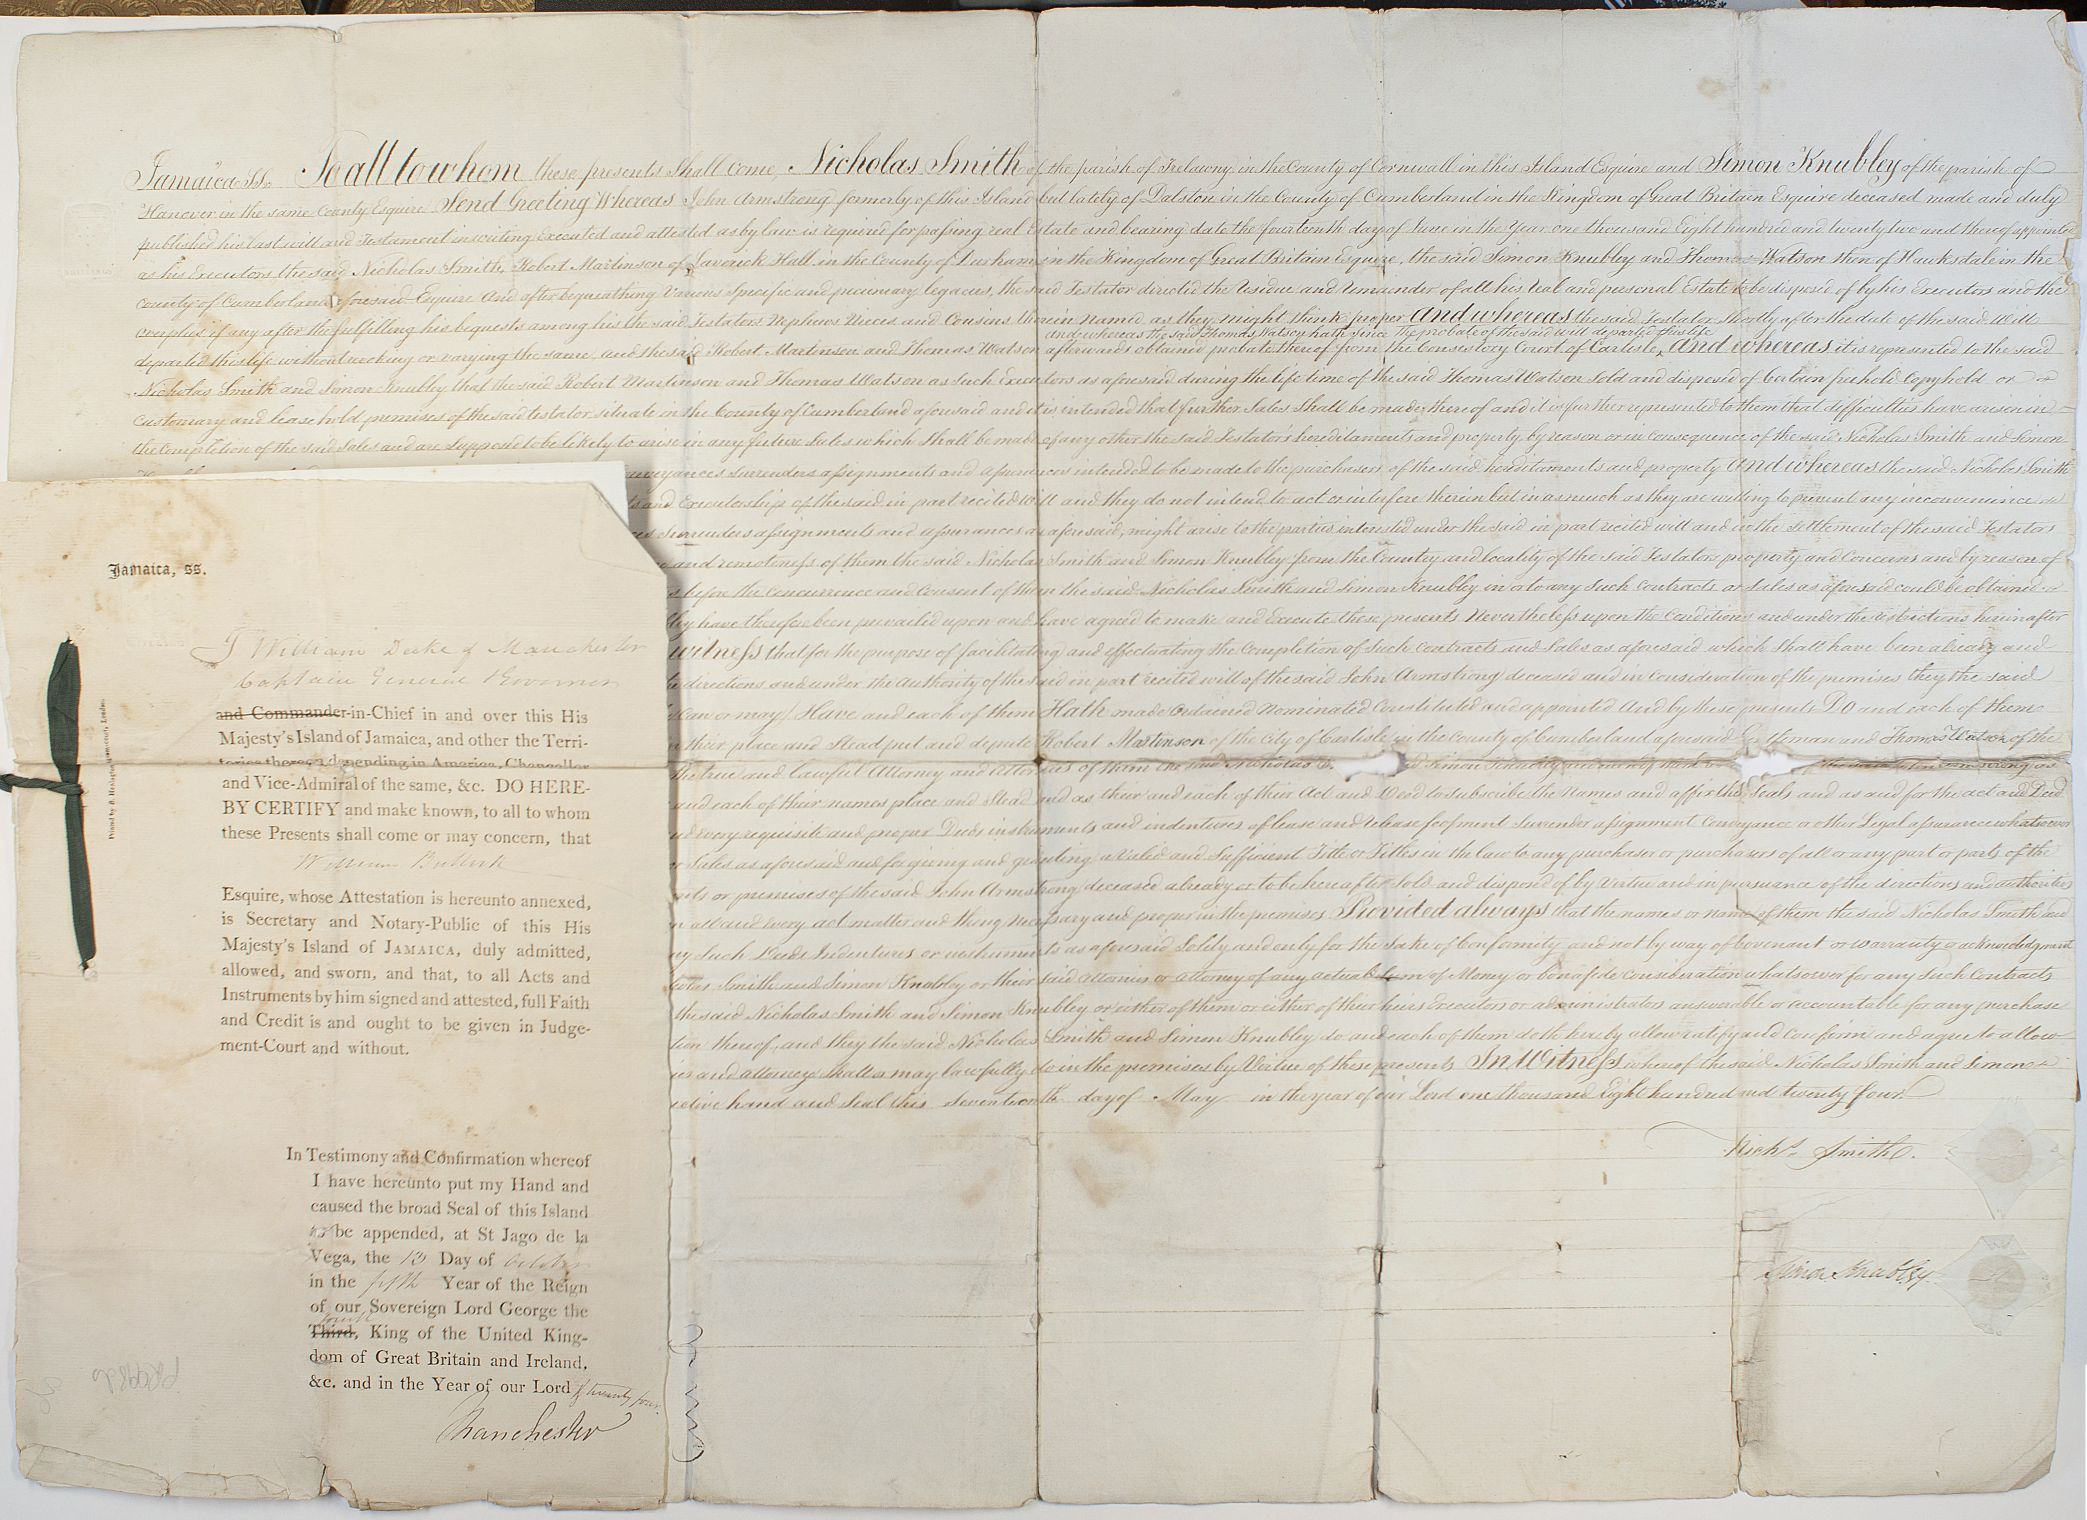 Jamaica Ss. To all to whom these presents Shall come, Nicholas Smith of the parish of Trelawny in the County of Cornwall in this Island Esquire and Simon Knubley of the parish of
Hanover in the same County Esquire Send Greeting Whereas John Armstrong formerly of this Island but lately of Dalston in the County of Cumberland in the Kingdom of Great Britain Esquire deceased made and duly
published his last will and Testament in writing Executed and attested as by law is required for passing real Estate and bearing date the fourteenth day of June in the Year one thousand Eight hundred and twenty two and thereof appointed
as his Executors the said Nicholas Smith, Robert Martinson of Laverick Hall in the County of Durham in the Kingdom of Great Britain Esquire, the said Simon Knubley and Thomas Watson then of Hawksdale in the
County of Cumberland aforesaid Esquire And after bequeathing Various Specific and pecuniary legacies, the said Testator directed the residue and remainder of all his real and personal Estate to be disposed of by his Executors and the
overplus if any after the fulfilling his bequests among his the said Testators Nephews Nieces and Cousins therein named as they might think proper And whereas the said Testator Shortly after the date of the said Will
and whereas the said Thomas Watson hath since the probate of the said will departed this life
departed this life without revoking or varying the same, and the said Robert Martinson and Thomas Watson afterwards obtained probate thereof from the Consistory Court of Carlisle, And whereas it is represented to the said
Nicholas Smith and Simon Knubley that the said Robert Martinson and Thomas Watson as Such Executors as aforesaid during the life time of the said Thomas Watson Sold and disposed of Certain freehold Copyhold or
Customary and leasehold premises of the said testator situate in the County of Cumberland aforesaid and it is intended that further Sales Shall be made thereof and it is further represented to them that difficulties have arisen in
the Completion of the said Sales and are Supposed to be likely to arise in any future Sales which Shall be made of any other the said Testator's hereditaments and property by reason or in Consequence of the said Nicholas Smith and Simon
conveyances Surrenders assignments and assurances intended to be made to the purchasers of the said hereditaments and property And whereas the said Nicholas Smith
and Executorship of the said in part recited Will and they do not intend to act or interfere therein but in as much as they are willing to prevent any inconvenience
Surrenders assignments and assurances as aforesaid, might arise to the parties interested under the said in part recited will and in the Settlement of the said Testators
and remoteness of them the said Nicholas Smith and Simon Knubley from the Country and locality of the said Testators property and Concerns and by reason of
before the Concurrence and Consent of them the said Nicholas Smith and Simon Knubley in or to any Such Contracts or Sales as aforesaid could be obtained
have therefore been prevailed upon and have agreed to make and Execute these presents Nevertheless upon the Conditions and under the restrictions herein after
witness that for the purpose of facilitating and effectuating the Completion of Such Contracts and Sales as aforesaid which Shall have been already and
directions and under the Authority of the said in part recited will of the said John Armstrong deceased and in Consideration of the premises they the said
can or may) Have and each of them Hath made Ordained Nominated Constituted and appointed And by these presents Do and each of them
their place and Stead put and depute Robert Martinson of the City of Carlisle in the County of Cumberland aforesaid Gentleman and Thomas Watson of the
the true and lawful Attorney and Attornies of them the said Nicholas
and each of their names place and Stead and as their and each of their Act and Deed to Subscribe the Names and affix the Seals and as and for the act and Deed
every requisite and proper Deeds instruments and indentures of lease and release feofment Surrender assignment Conveyance or other Legal assurance whatsoever
or Sales as aforesaid and for giving and granting a Valid and Sufficient Title or Titles in the law to any purchaser or purchasers of all or any part or parts of the
or premises of the said John Armstrong deceased already or to be hereafter Sold and disposed of by Virtue and in pursuance of the directions and authorities
all and every act matter and thing necessary and proper in the premises Provided always that the names or name of them the said Nicholas Smith and
Such Deeds Indentures or instruments as aforesaid Solely and only for the Sake of Conformity and not by way of Covenant or warranty or acknowledgment
Smith and Simon Knubley or their said Attornies or Attorney of any actual Sum of Money or bonafide Consideration whatsoever for any Such Contracts
the said Nicholas Smith and Simon Knubley or either of them or either of their heirs Executors or administrators answerable or accountable for any purchase
thereof, and they the said Nicholas Smith and Simon Knubley do and each of them doth hereby allow ratify and Confirm and agree to allow
and attorneys shall or may lawfully do in the premises by Virtue of these presents In Witness whereof the said Nicholas Smith and Simon
hand and Seal this Seventeenth day of May in the year of our Lord one thousand Eight hundred and twenty four
Nichs. Smith.
Simon Knubley
Jamaica, ss.
I William Duke of Manchester
Captain General & Governor
and Commander-in-Chief in and over this His
Majesty's Island of Jamaica, and other the Terri-
tories thereon depending in America, Chancellor
and Vice-Admiral of the same, &c. DO HERE-
BY CERTIFY and make known, to all to whom
these Presents shall come or may concern, that
William Bullock
Esquire, whose Attestation is hereunto annexed,
is Secretary and Notary-Public of this His
Majesty's Island of JAMAICA, duly admitted,
allowed, and sworn, and that, to all Acts and
Instruments by him signed and attested, full Faith
and Credit is and ought to be given in Judge-
ment-Court and without.
In Testimony and Confirmation whereof
I have hereunto put my Hand and
caused the broad Seal of this Island
to be appended, at St Jago de la
Vega, the 13 Day of October
in the fifth Year of the Reign
of our Sovereign Lord George the
fourth
Third, King of the United King-
dom of Great Britain and Ireland,
&c. and in the Year of our Lord & twenty four.
Manchester